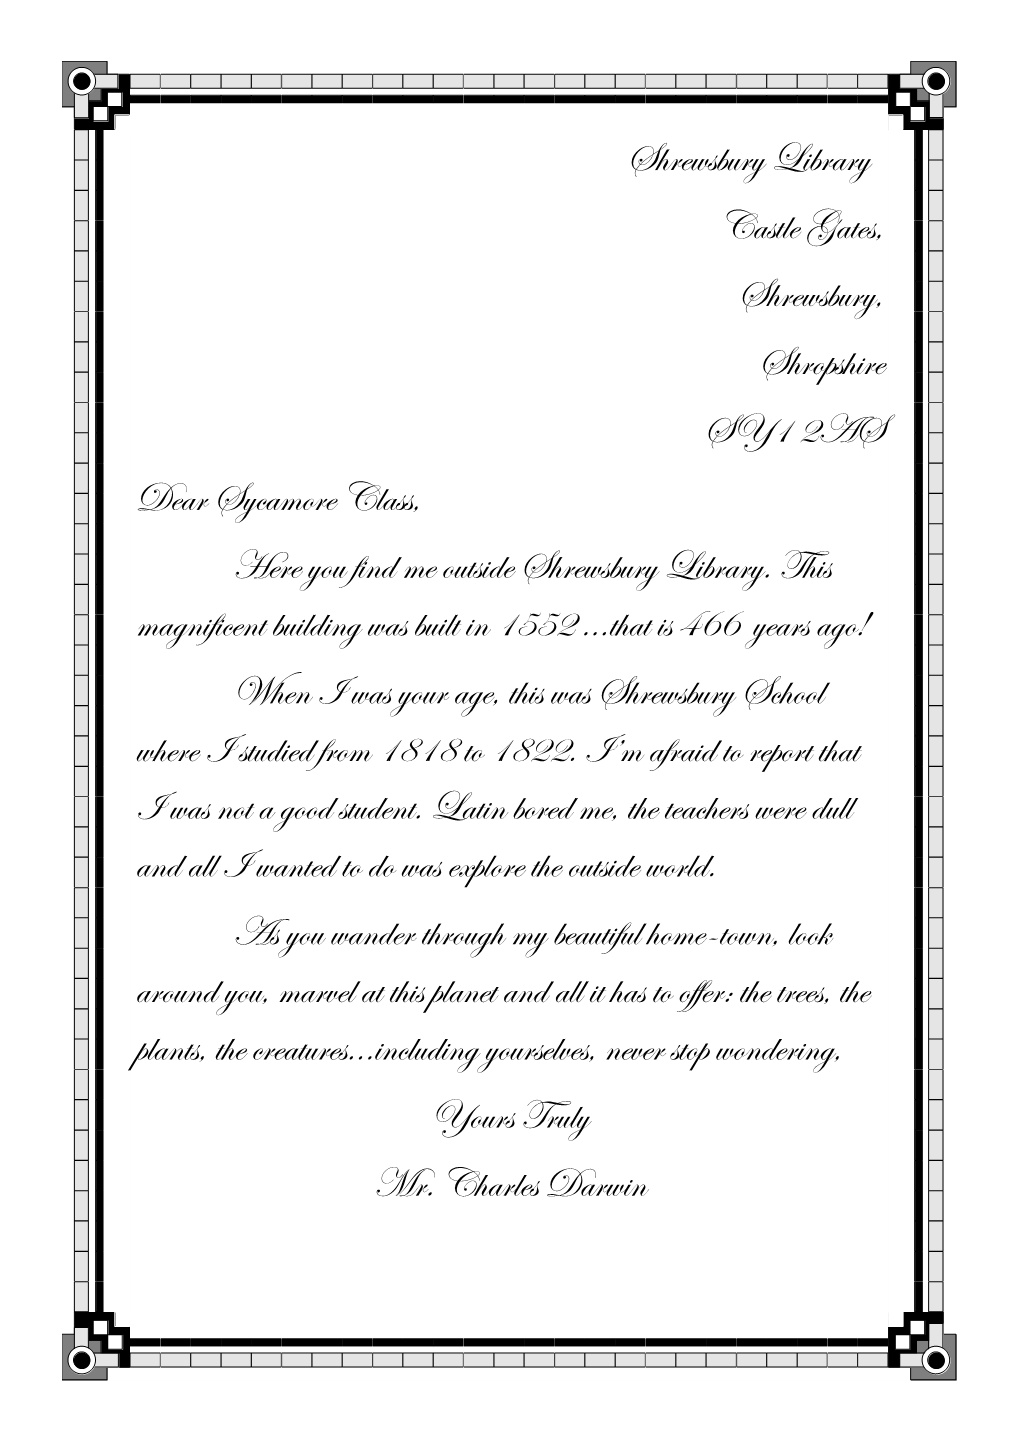 Shrewsbury Library
Castle Gates,
Shrewsbury,
Shropshire
SY1 2AS
Dear Sycamore Class,
Here you find me outside Shrewsbury Library. This
magnificent building was built in 1552 ...that is 466 years ago!
When I was your age, this was Shrewsbury School
where I studied from 1818 to 1822. I'm afraid to report that
I was not a good student. Latin bored me, the teachers were dull
and all I wanted to do was explore the outside world.
As you wander through my beautiful home-town, look
around you, marvel at this planet and all it has to offer: the trees, the
plants, the creatures...including yourselves, never stop wondering,
Yours Truly
Mr. Charles Darwin